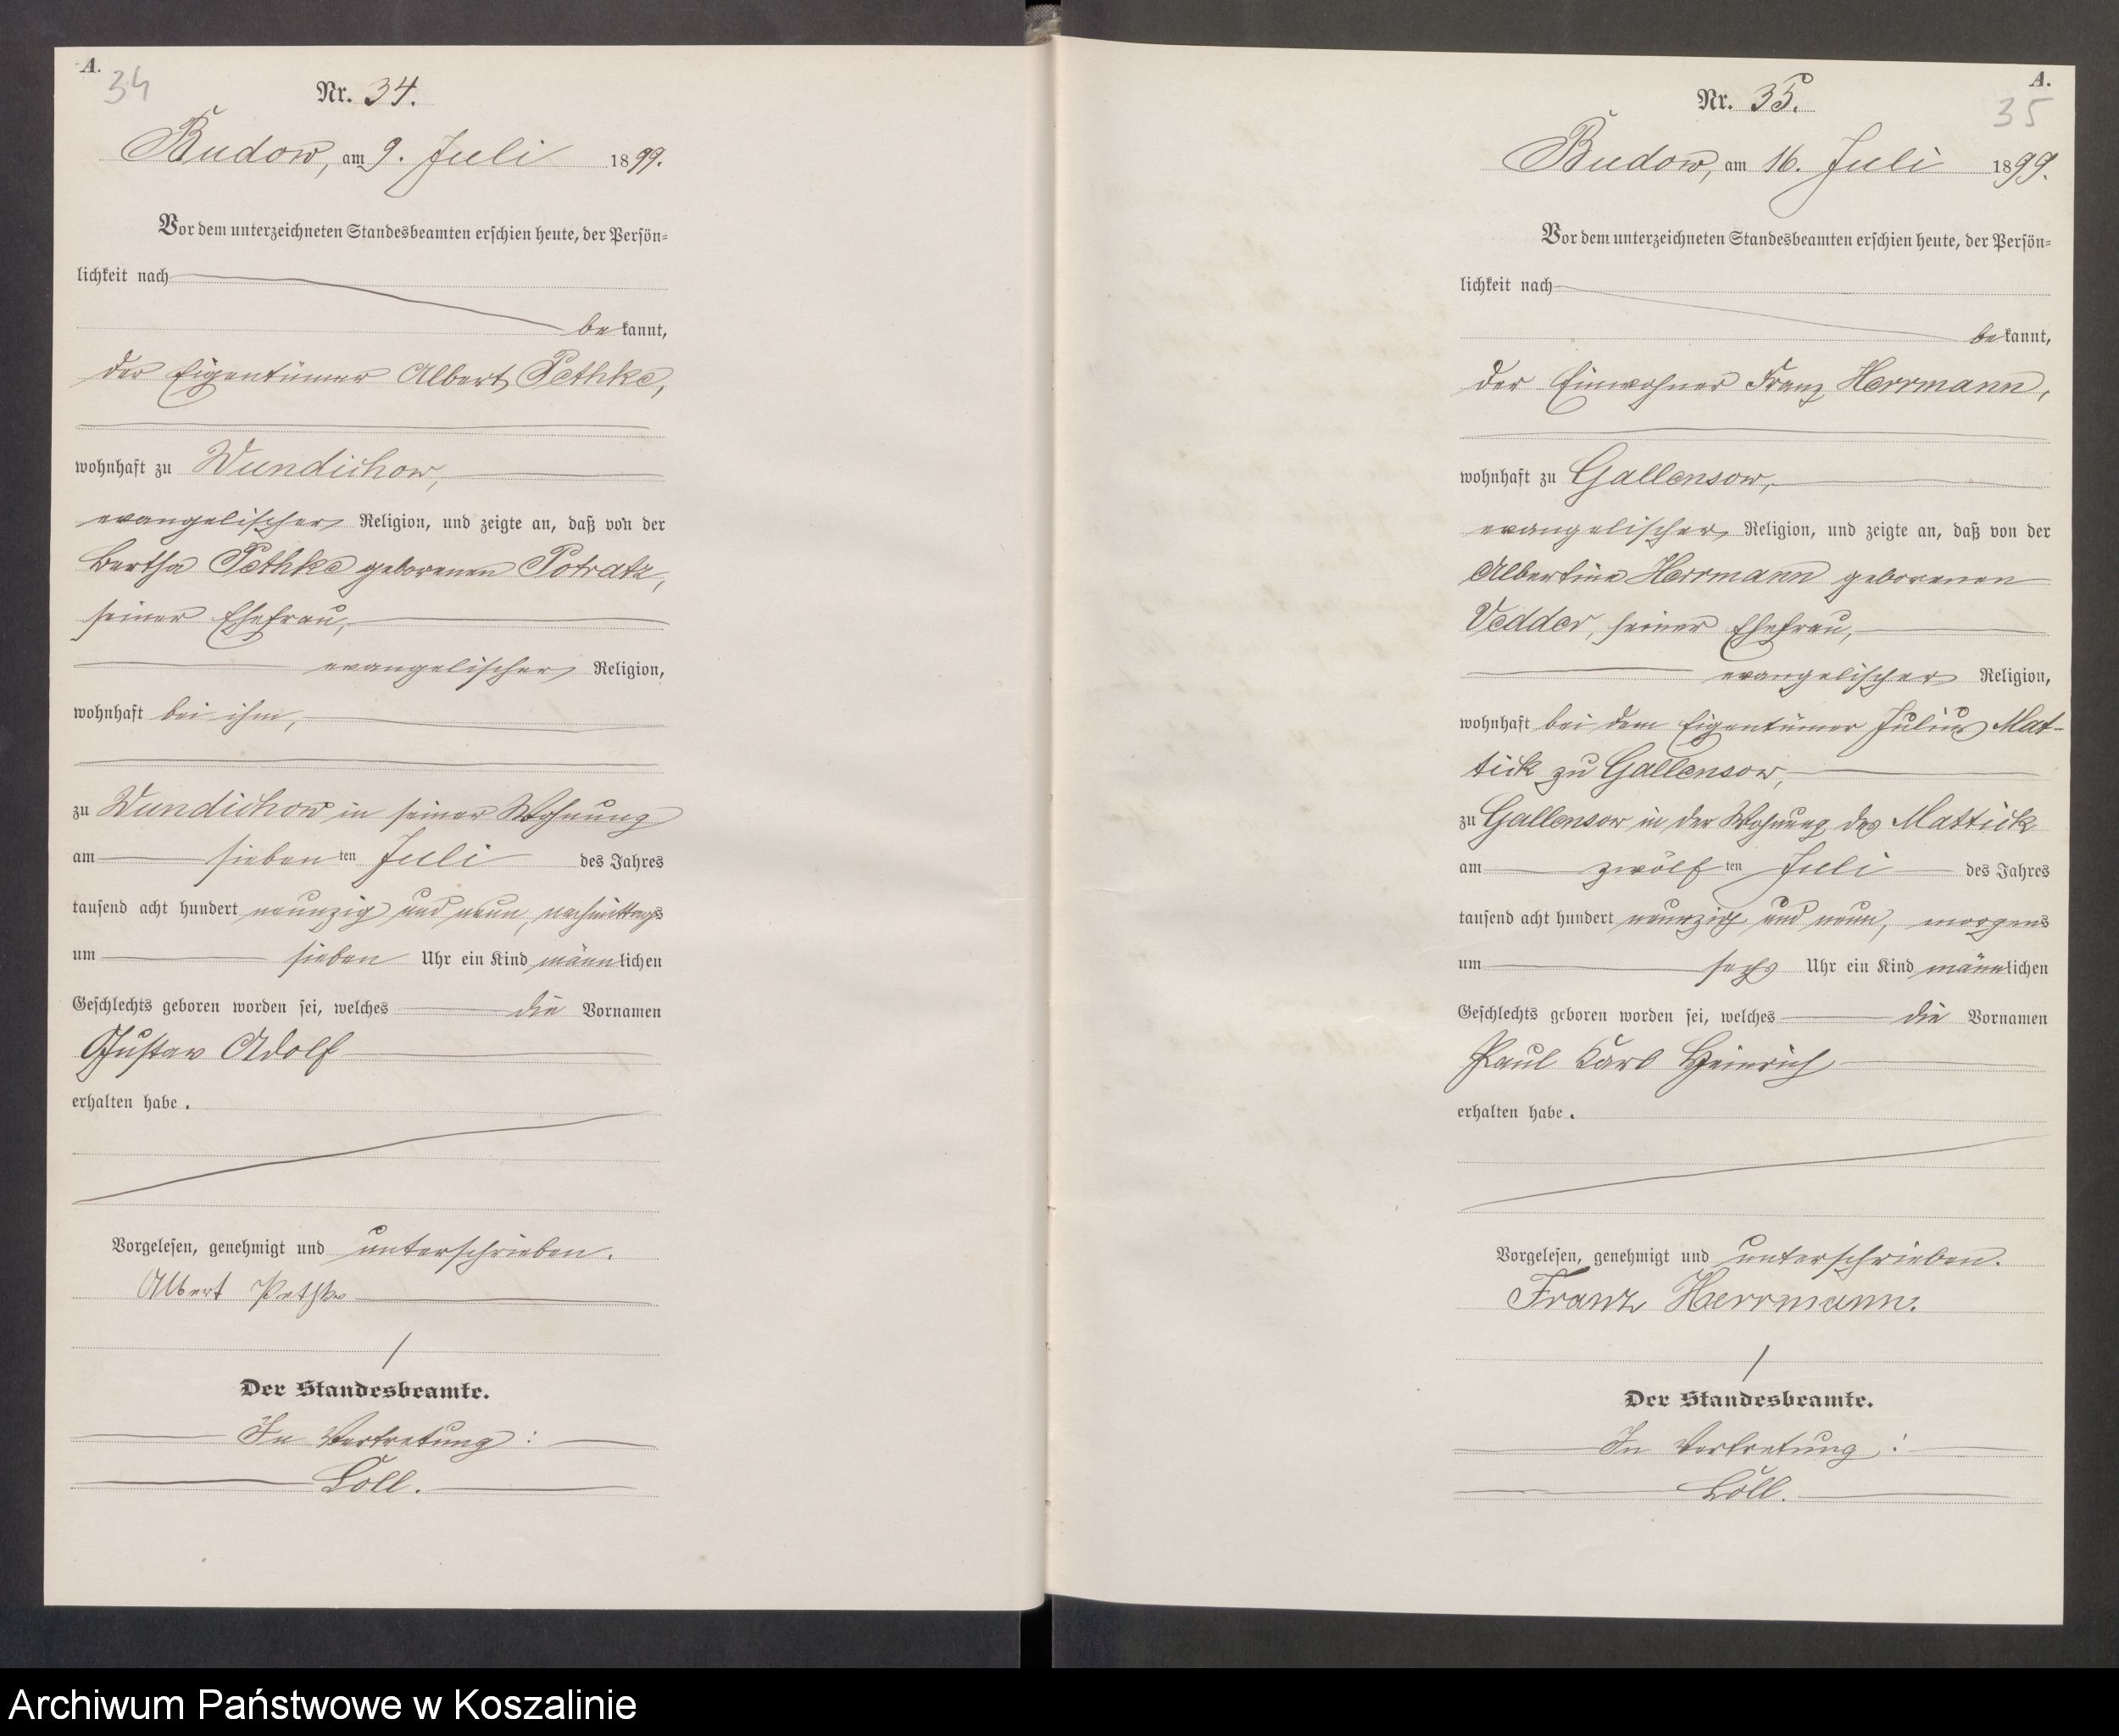 A.
34
Nr. 34.
Budow, am 9. Juli 1899.
Vor dem unterzeichneten Standesbeamten erschien heute, der Persön=
lichkeit nach
bekannt,
der Eigentümer Albert Pethke,
wohnhaft zu Wundichow,
evangelischer Religion, und zeigte an, daß von der
Bertha Pethke geborenen Potratz,
seiner Ehefrau,
evangelischer Religion,
wohnhaft bei ihm,
zu Wundichow in seiner Wohnung
am siebenten Juli des Jahres
tausend acht hundert neunzig und neun, nachmittags
um sieben Uhr ein Kind männlichen
Geschlechts geboren worden sei, welches die Vornamen
Gustav Adolf
erhalten habe.
Vorgelesen, genehmigt und unterschrieben.
Albert Pethke
Der Standesbeamte.
In Vertretung:
Löll.
A.
35
Nr. 35.
Budow, am 16. Juli 1899.
Vor dem unterzeichneten Standesbeamten erschien heute, der Persön=
lichkeit nach
bekannt,
der Einwohner Franz Herrmann,
wohnhaft zu Gallensow,
evangelischer Religion, und zeigte an, daß von der
Albertine Herrmann geborenen
Vedder, seiner Ehefrau,
evangelischer Religion,
wohnhaft bei dem Eigentümer Julius Mat-
tick zu Gallensow,
zu Gallensow in der Wohnung des Mattick
am zwölften Juli des Jahres
tausend acht hundert neunzig und neun, morgens
um sechs Uhr ein Kind männlichen
Geschlechts geboren worden sei, welches die Vornamen
Paul Karl Heinrich
erhalten habe.
Vorgelesen, genehmigt und unterschrieben.
Franz Herrmann.
Der Standesbeamte.
In Vertretung:
Löll.
Archiwum Państwowe w Koszalinie